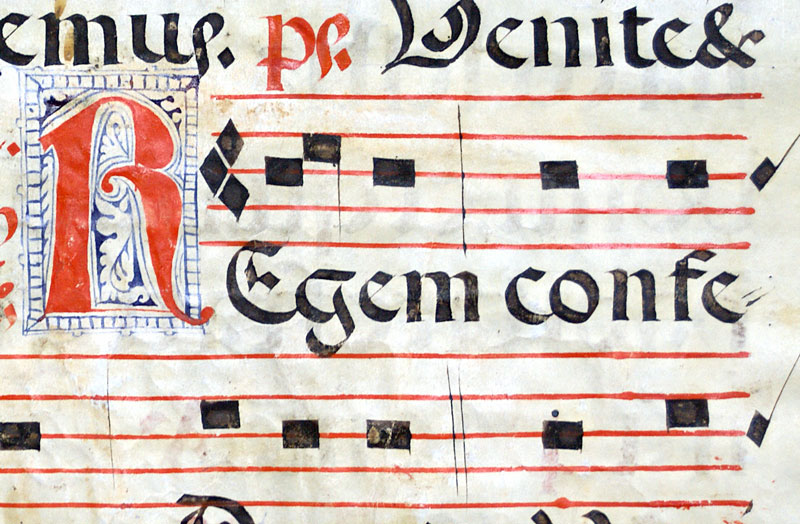 emus. ps. Venite&
REgem confe